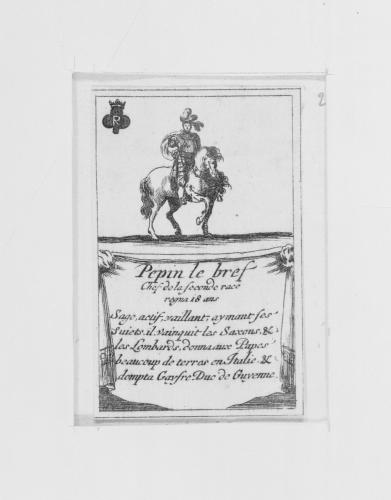 R
2
Pepin le bref
Chef de la seconde race
regna 18 ans
Sage, actif, vaillant, aymant ses
suiets, il vainquit les Saxons, &
les Lombards, donna aux Papes
beaucoup de terres en Italie &
dompta Gayfre Duc de Guyenne.